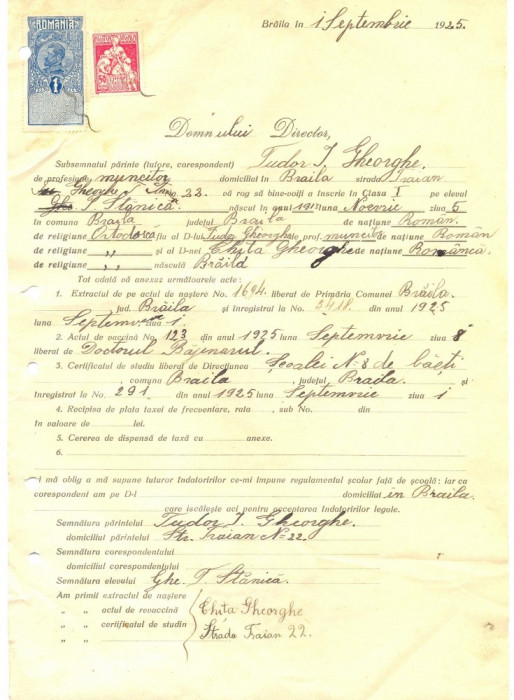 ROMANIA
1
50
Brăila în 1 Septembrie 1925.
Domnului Director,
Subsemnatul părinte (tutore, corespondent) Tudor I. Gheorghe.
de profesiune muncitor domiciliat în Braila strada Traian
Gheorghe No. 22. vă rog să bine-voiți a înscrie în Clasa I pe elevul
Ghe. T. Stănică născut în anul luna Noevrie ziua 5
în comuna Braila județul Braila de națiune Român.
de religiune Ortodoxă fiu al D-lui Tudor Gheorghe de prof. muncitor de națiune Român
de religiune „ și al D-nei Chița Gheorghe de națiune Româncă.
de religiune „ născută Brăila
Tot odată vă anexez următoarele acte:
1. Extractul de pe actul de naștere No. 1694. liberat de Primăria Comunei Brăila.
jud. Brăila și înregistrat la No. din anul 1925
luna Septemvrie ziua 1.
2. Actul de vaccină No. 123 din anul 1925 luna Septemvrie ziua 8
liberat de Doctorul
3. Certificatul de studiu liberat de Direcțiunea Școalei No 8 de băeți
comuna Braila județul Braila. și
înregistrat la No. 291. din anul 1925 luna Septemvrie ziua 1
4. Recipisa de plata taxei de frecuentare, rata , sub No. din
în valoare de lei.
5. Cererea de dispensă de taxă cu anexe.
6.
și mă oblig a mă supune tuturor îndatoririlor ce-mi impune regulamentul școlar față de școală: iar ca
corespondent am pe D-l domiciliat în Braila.
care iscălește aci pentru acceptarea îndatoririlor legale.
Semnătura părintelui Tudor I. Gheorghe.
domiciliul părintelui Str. Traian No 22.
Semnătura corespondentului
domiciliul corespondentului
Semnătura elevului Ghe. T. Stănică.
Am primit extractul de naștere
„ „ actul de revaccină Chița Gheorghe
„ „ certificatul de studiu Strada Traian 22.
„ „